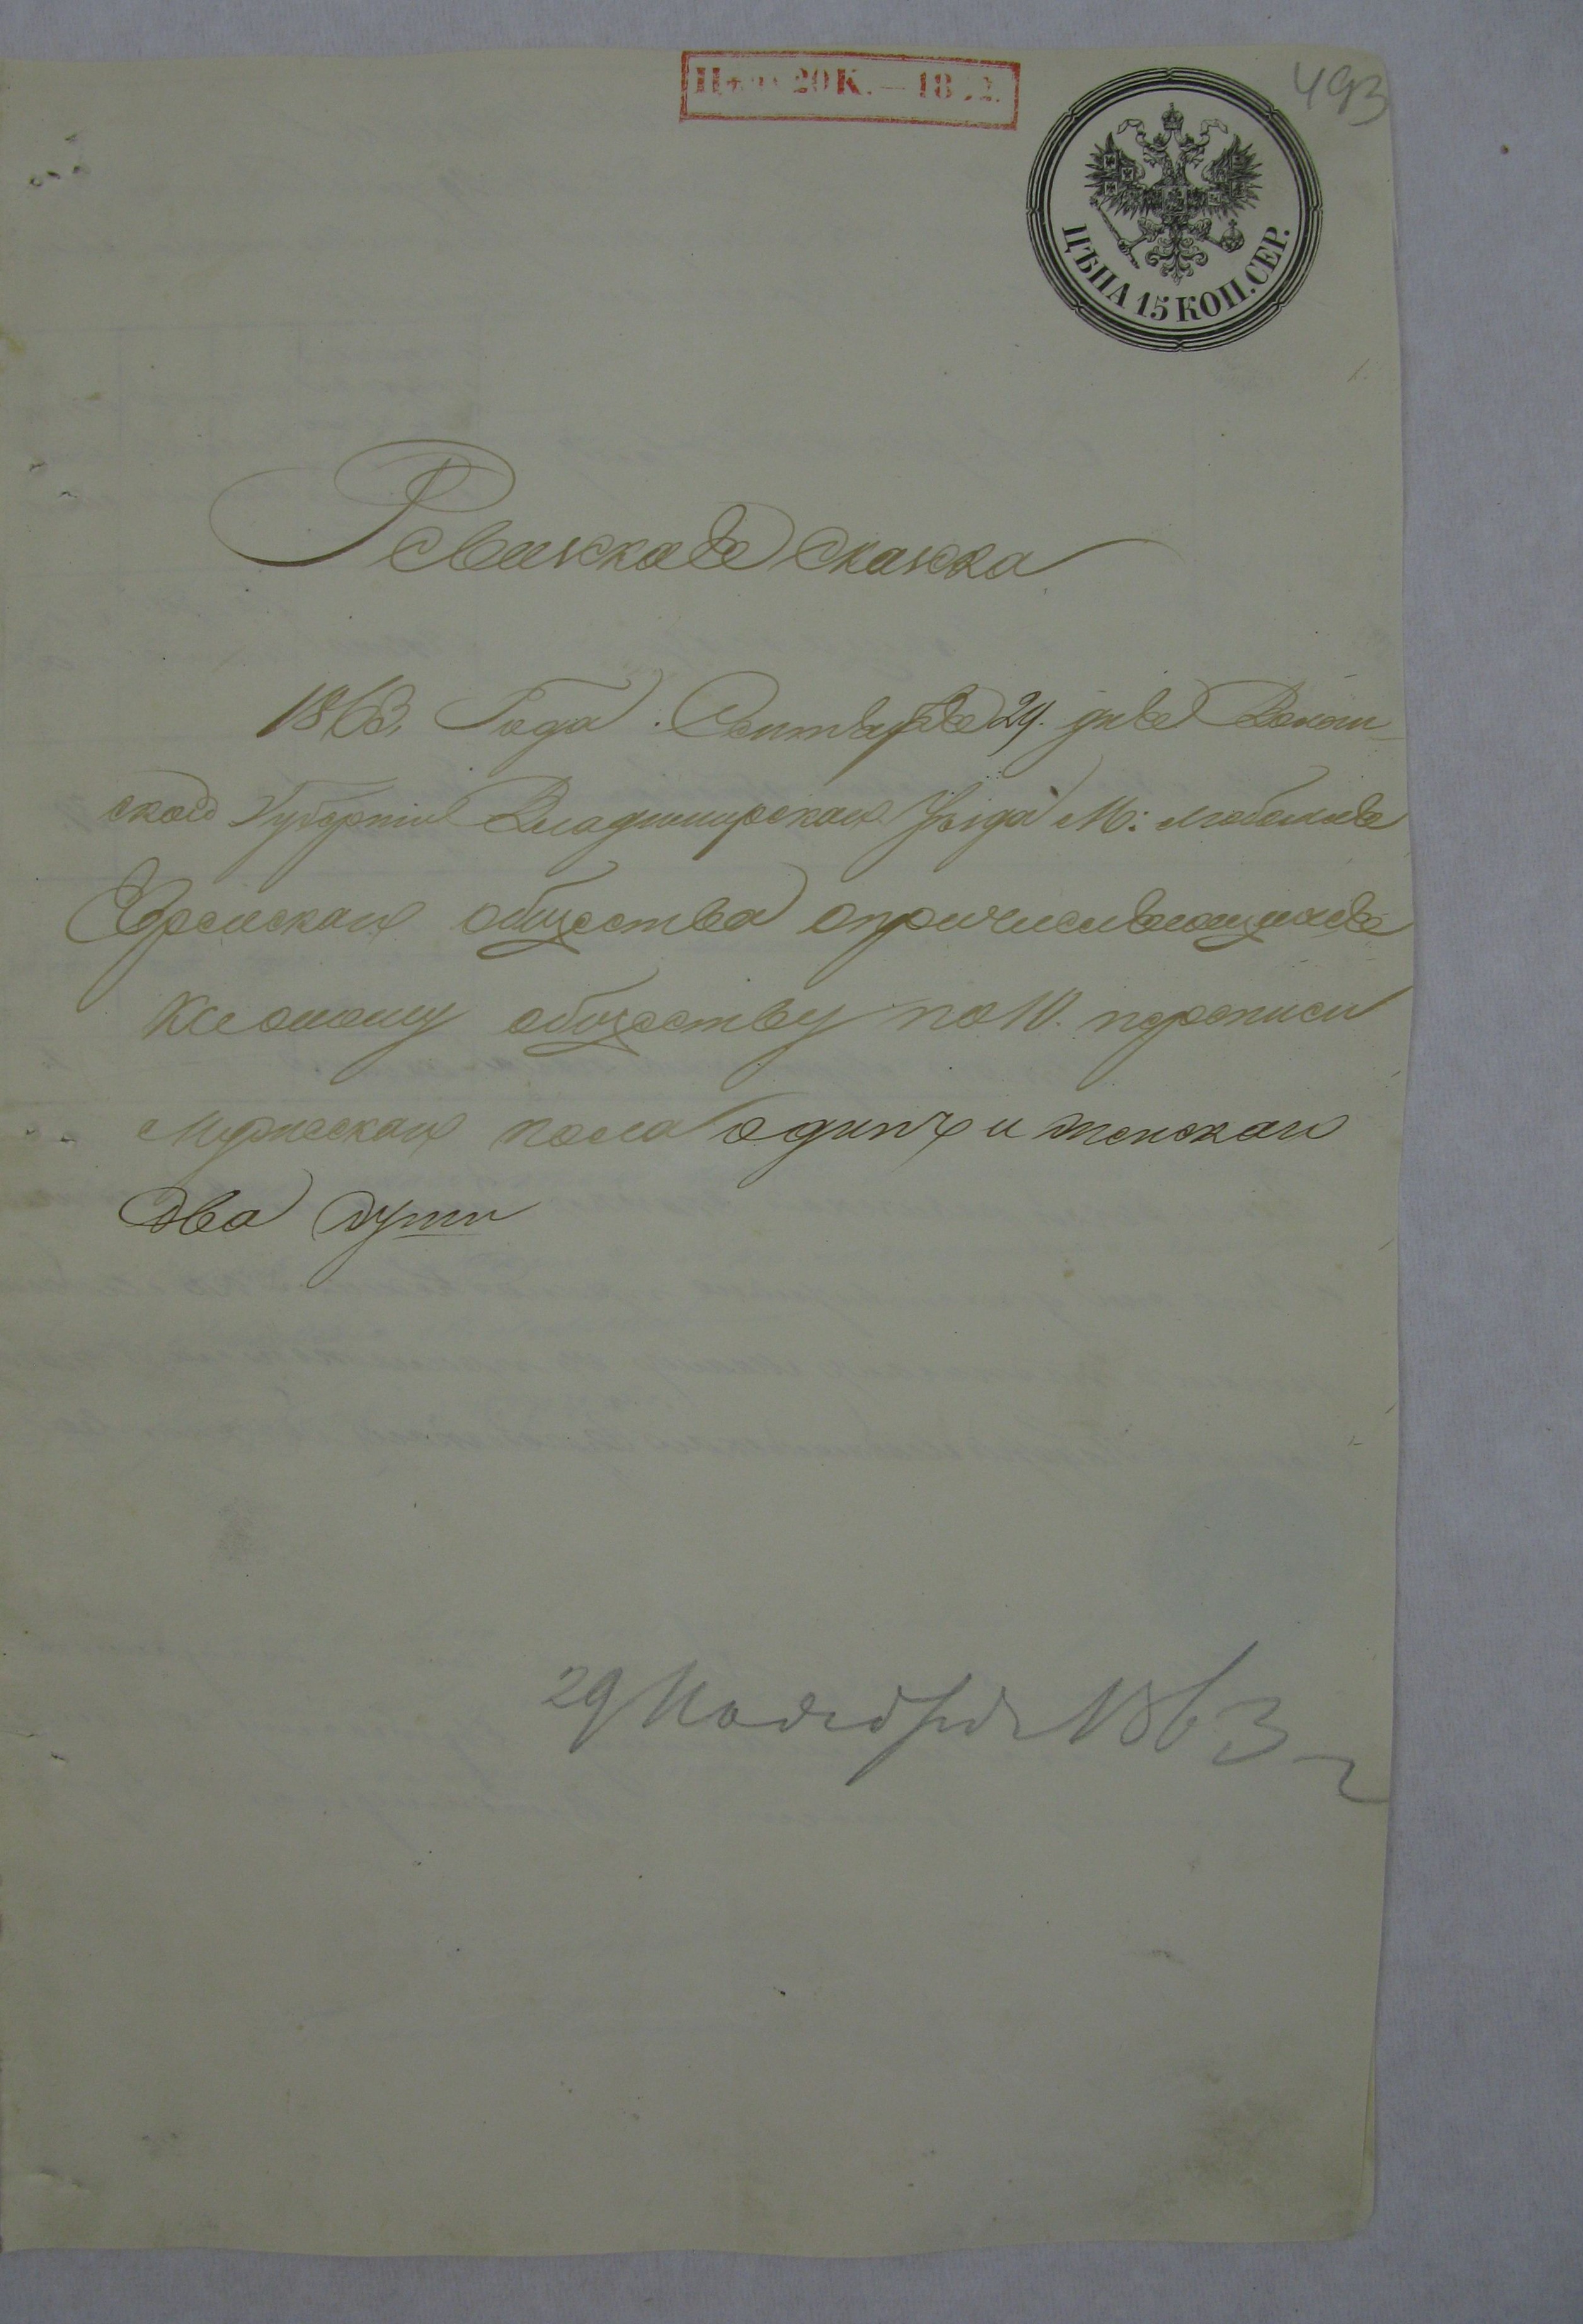 Цѣна 20 К. — 18
493
ЦѢНА 15 КОП. СЕР.
Ревижская Сказка
1863. Года. Сентября 24. дня Волын-
ской Губерніи Владимирскаго Уѣзда М: Любомля
Еврейскаго общества опричисляющихся
к оному обществу по 10. переписи
Мужескаго пола одинъ и женскаго
два души
29 Ноября 1863 г